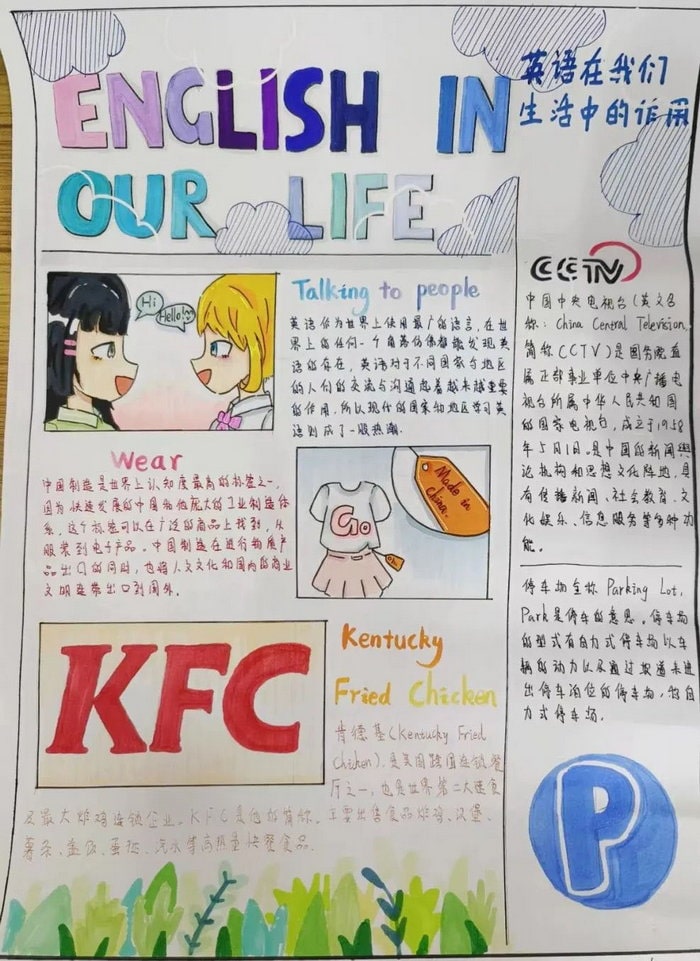 ENGLISH IN
OUR LIFE
英语在我们
生活中的作用
Hi
Hello!
Talking to people
英语作为世界上使用最广的语言,在世
界上的任何一个角落仿佛都能发现英
语的存在,英语对于不同国家与地区
的人们的交流与沟通起着越来越重要
的作用,所以现代的国家和地区学习英
语则成了一股热潮.
Wear
中国制造是世界上认知度最高的标签之一,
因为快速发展的中国和他庞大的工业制造体
系,这个标签可以在广泛的商品上找到,从
服装到电子产品。中国制造在进行物质产
品出口的同时,也将人文文化和国内的商业
文明连带出口到国外。
Go
Made in
China.
KFC
Kentucky
Fried Chicken
肯德基(Kentucky Fried
Chicken),是美国跨国连锁餐
厅之一,也是世界第二大速食
及最大炸鸡连锁企业。KFC是他的简称。主要出售食品炸鸡、汉堡、
薯条、盖饭、蛋挞、汽水等高热量快餐食品.
CCTV
中国中央电视台(英文名
称:China Central Television,
简称(CCTV)是国务院直
属正部事业单位中央广播电
视台所属中华人民共和国
的国家电视台,成立于1958
年5月1日。是中国的新闻舆
论机构和思想文化阵地,具
有传播新闻、社会教育、文
化娱乐、信息服务等多种功
能。
停车场全称 Parking Lot,
Park是停车的意思。停车场
的型式有自力式停车场以车
辆的动力以及通过坡道来进
出停车泊位的停车场,为自
力式停车场.
P